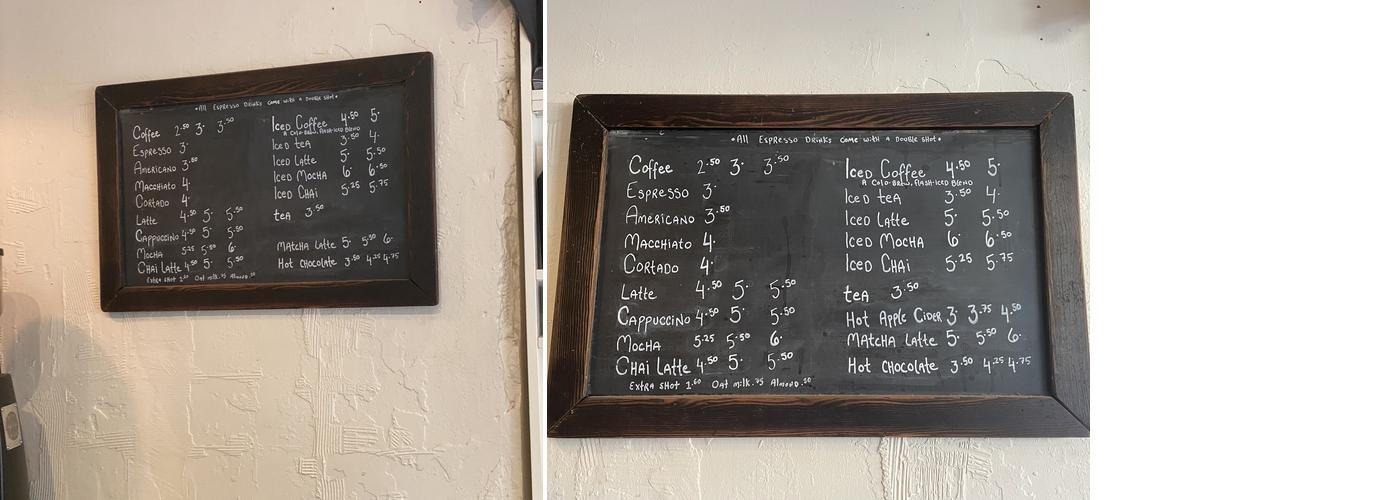 •All Espresso Drinks come with a double shot•
Coffee 2.50 3. 3.50
Espresso 3.
Americano 3.50
Macchiato 4.
Cortado 4.
Latte 4.50 5. 5.50
Cappuccino 4.50 5. 5.50
Mocha 5.25 5.50 6.
Chai Latte 4.50 5. 5.50
Extra shot 1.60 Oat milk .75 Almond .50
Iced Coffee 4.50 5.
A Cold-Brew, Flash-Iced Blend
Iced tea 3.50 4.
Iced Latte 5. 5.50
Iced Mocha 6. 6.50
Iced Chai 5.25 5.75
tea 3.50
Matcha Latte 5. 5.50 6.
Hot Chocolate 3.50 4.25 4.75
•All Espresso Drinks come with a double shot•
Coffee 2.50 3. 3.50
Espresso 3.
Americano 3.50
Macchiato 4.
Cortado 4.
Latte 4.50 5. 5.50
Cappuccino 4.50 5. 5.50
Mocha 5.25 5.50 6.
Chai Latte 4.50 5. 5.50
Extra shot 1.60 Oat milk .75 Almond .50
Iced Coffee 4.50 5.
A Cold-Brew, Flash-Iced Blend
Iced tea 3.50 4.
Iced Latte 5. 5.50
Iced Mocha 6. 6.50
Iced Chai 5.25 5.75
tea 3.50
Hot Apple Cider 3. 3.75 4.50
Matcha Latte 5. 5.50 6.
Hot Chocolate 3.50 4.25 4.75